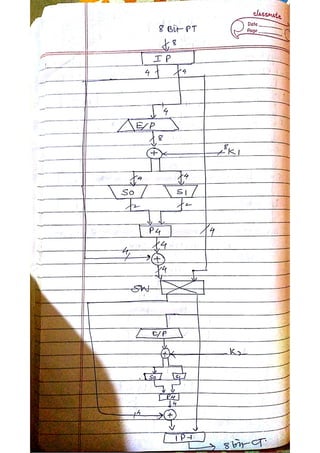 classmate
Date
Page
8 Bit PT
8
IP
4 4
4
E/P
8
+ 8 K1
4 4
S0 S1
2 2
P4
4 4
4 +
4
SW
E/P
+ K2
S0 S1
P4
4
4 +
IP-1
8 bit CT